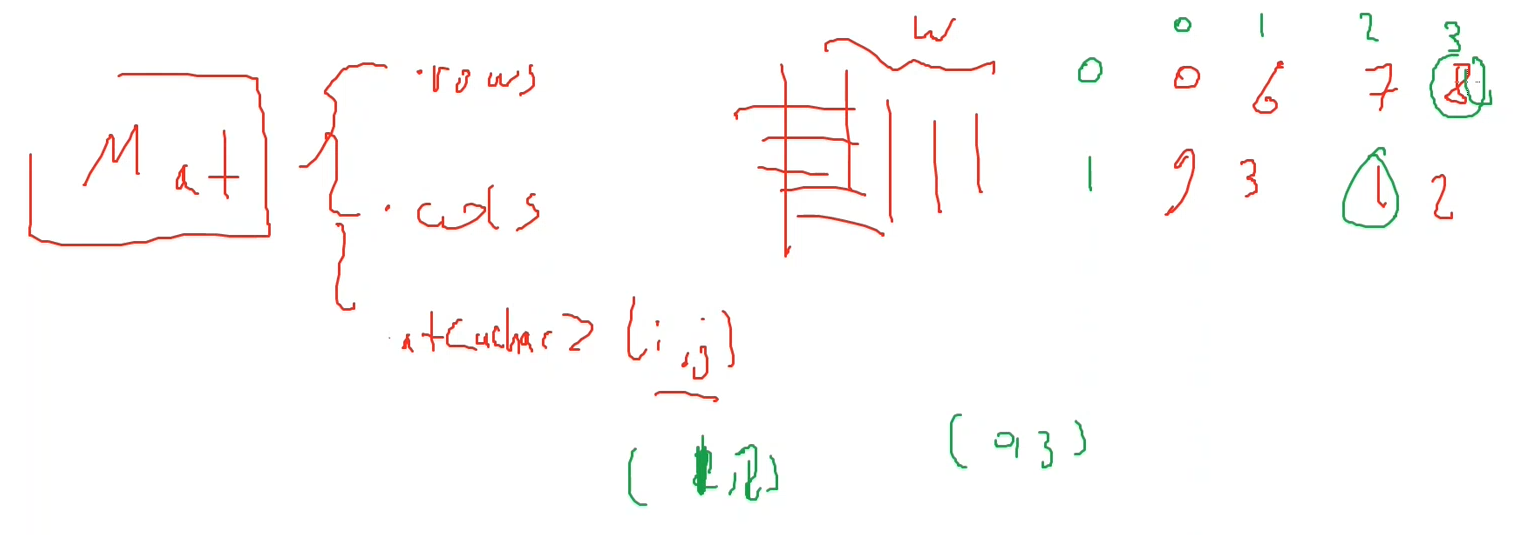 Mat
.rows
.cols
.at<uchar>(i,j)
W
0 1 2 3
0 0 6 7 8
1 9 3 1 2
(1,2)
(0,3)